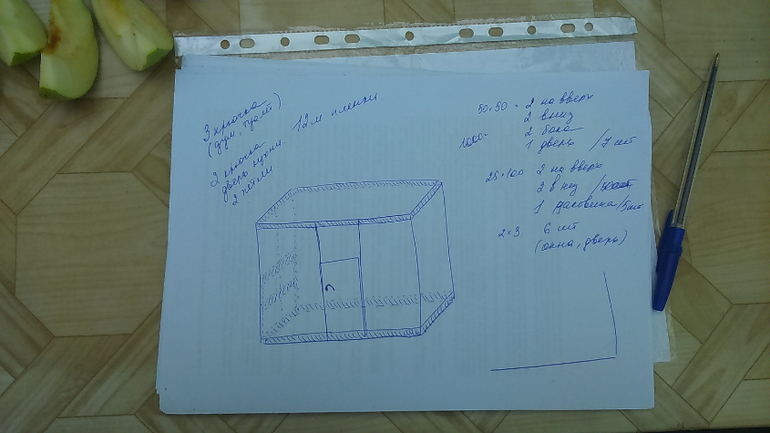 3 крючка
(душ, туалт)
2 крючка
дверь кухни.
2 петли
12 м пленки
50×50 - 2 на вверх
2 вниз
2 бока
1 дверь /7 шт
25×100 2 на вверх
2 в низ
1 раковина /5 шт
2×3 6 шт
(окна, дверь)